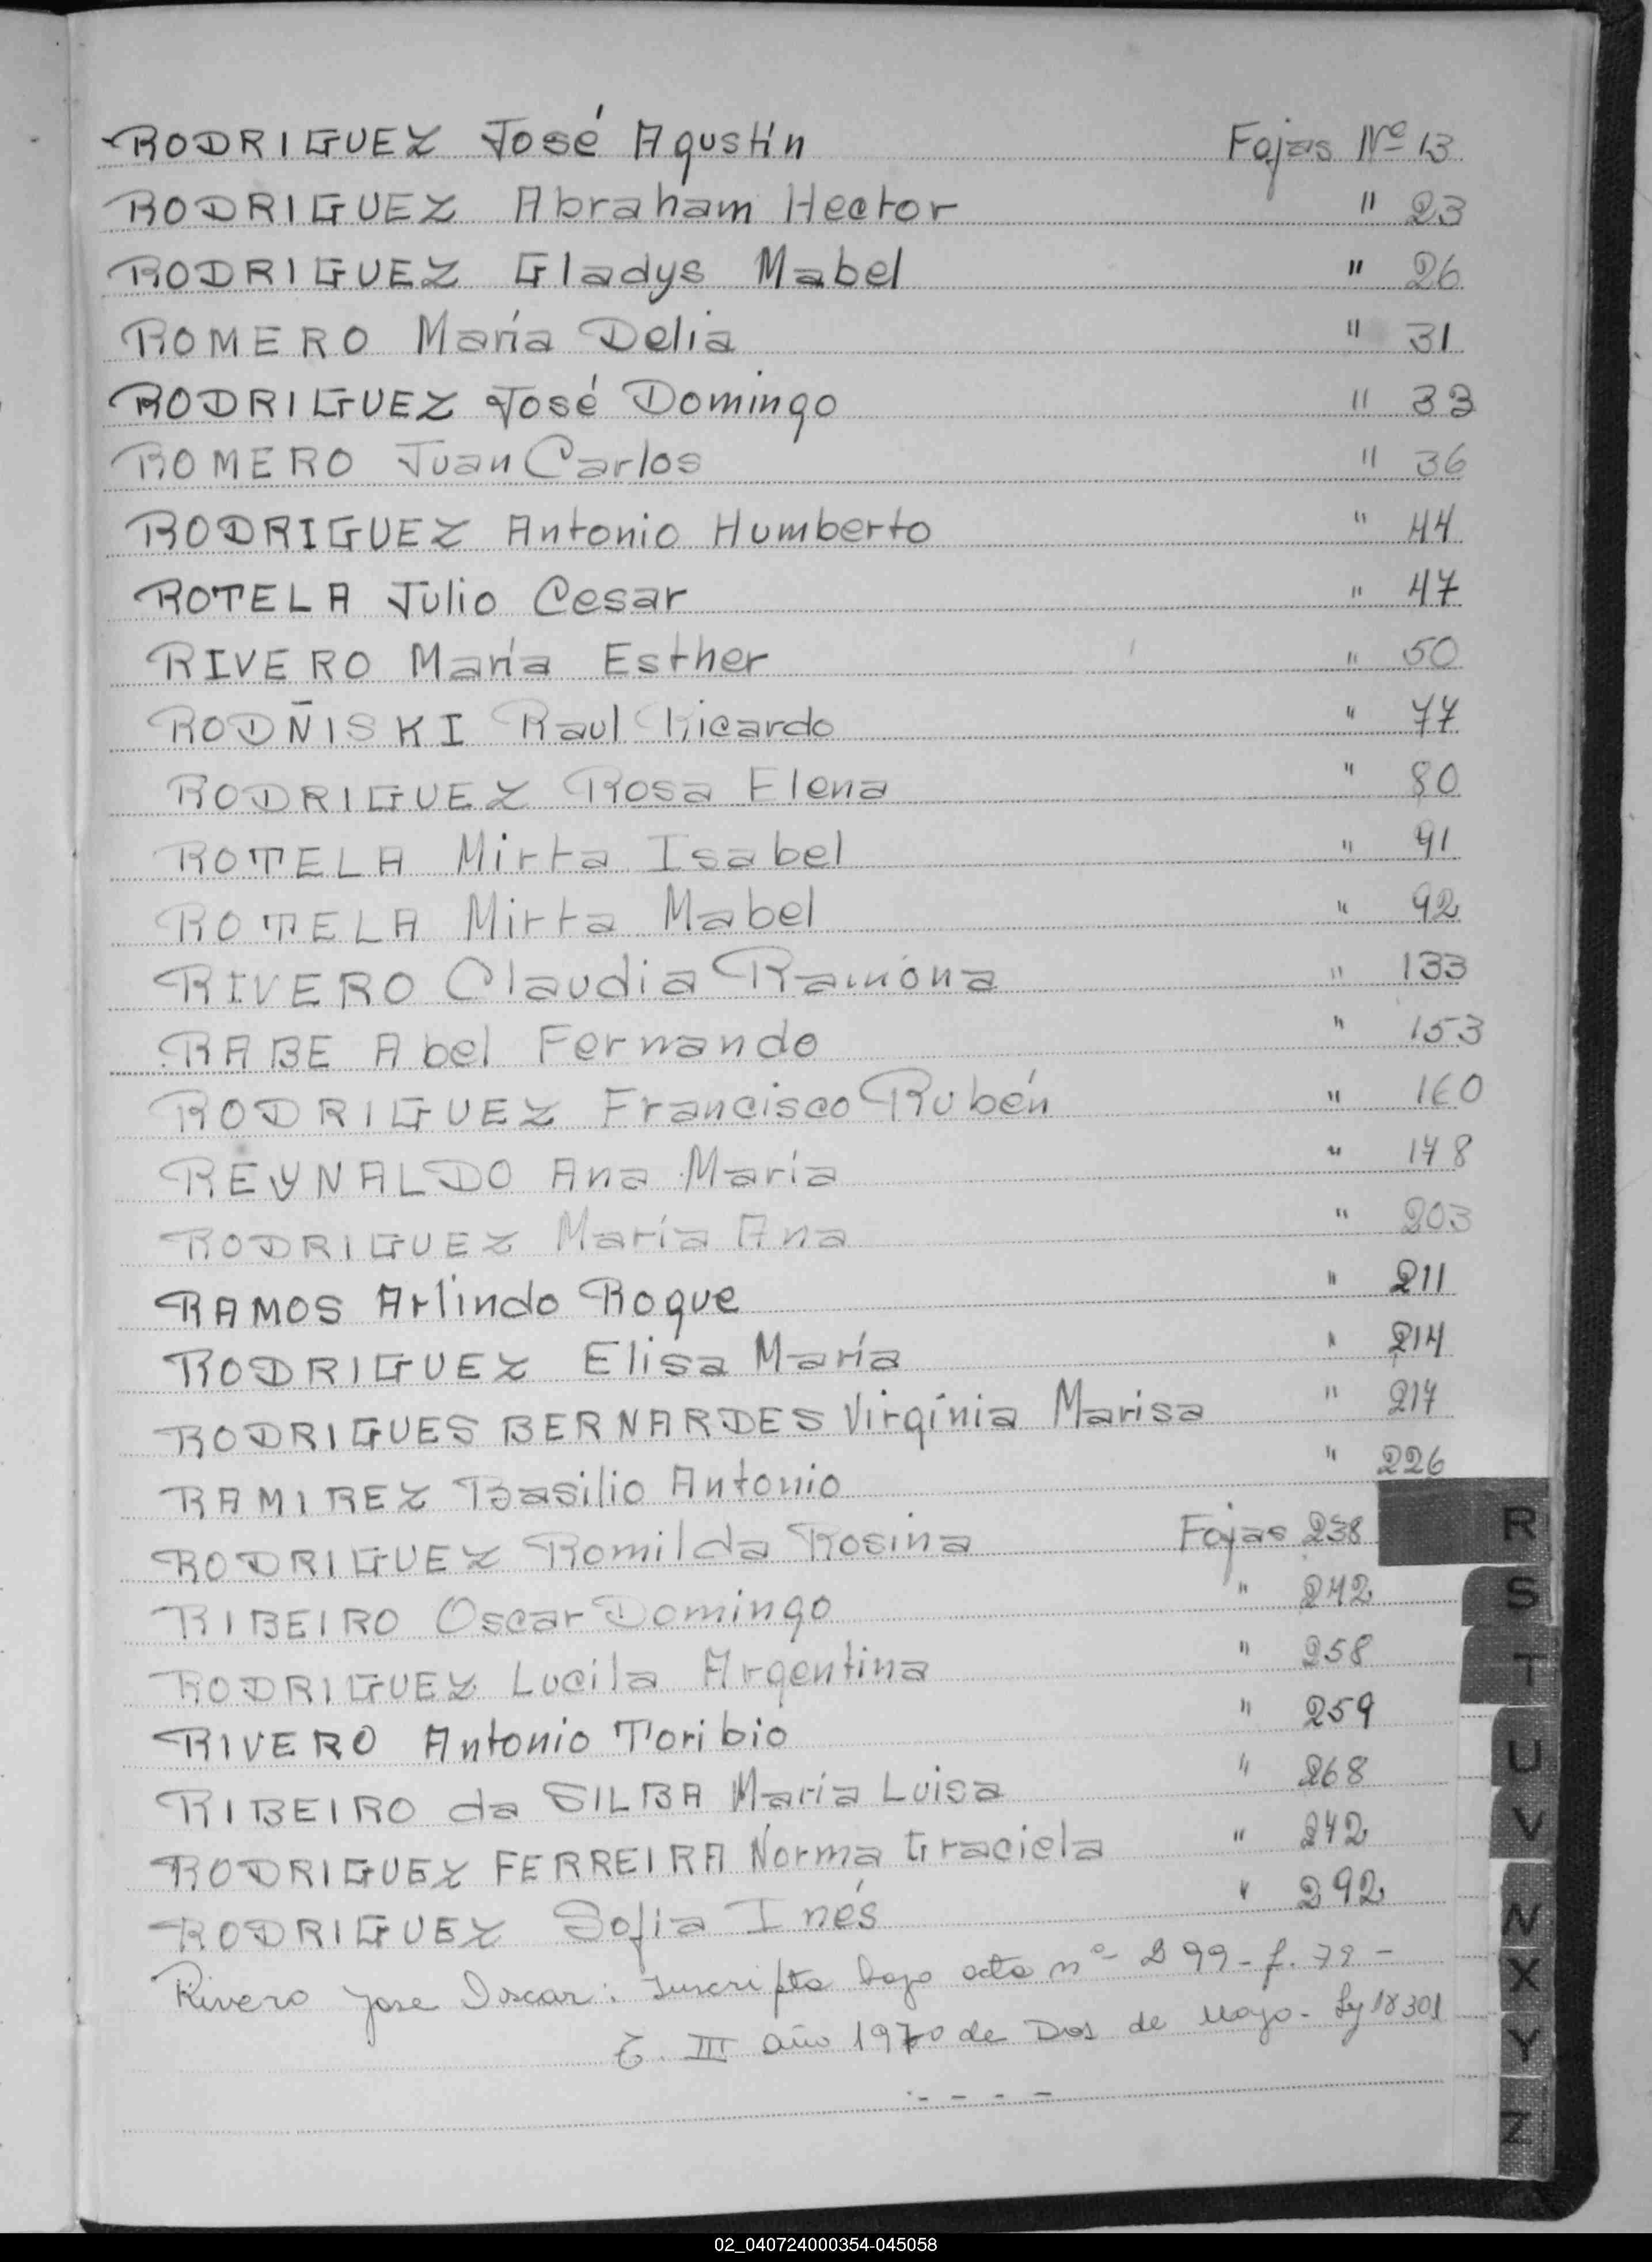 RODRIGUEZ José Agustín Fojas Nº 13
RODRIGUEZ Abraham Hector " 23
RODRIGUEZ Gladys Mabel " 26
ROMERO María Delia " 31
RODRIGUEZ José Domingo " 33
ROMERO Juan Carlos " 36
RODRIGUEZ Antonio Humberto " 44
ROTELA Julio Cesar " 47
RIVERO María Esther " 50
RODÑISKI Raul Ricardo " 77
RODRIGUEZ Rosa Elena " 80
ROTELA Mirta Isabel " 91
ROTELA Mirta Mabel " 92
RIVERO Claudia Ramona " 133
RABE Abel Fernando " 153
RODRIGUEZ Francisco Rubén " 160
REYNALDO Ana María " 178
RODRIGUEZ María Ana " 203
RAMOS Arlindo Roque " 211
RODRIGUEZ Elisa María " 214
RODRIGUES BERNARDES Virginia Marisa " 217
RAMIREZ Basilio Antonio " 226
RODRIGUEZ Romilda Rosina Fojas 238
RIBEIRO Oscar Domingo " 242
RODRIGUEZ Lucila Argentina " 258
RIVERO Antonio Toribio " 259
RIBEIRO da SILBA María Luisa " 268
RODRIGUEZ FERREIRA Norma Graciela " 272
RODRIGUEZ Sofia Inés " 292
Rivero Jose Oscar: Inscripto bajo acta nº 299 - f. 79 -
T. III año 1970 de Dos de Mayo - Ley 18301
R
S
T
U
V
N
X
Y
Z
02_040724000354-045058